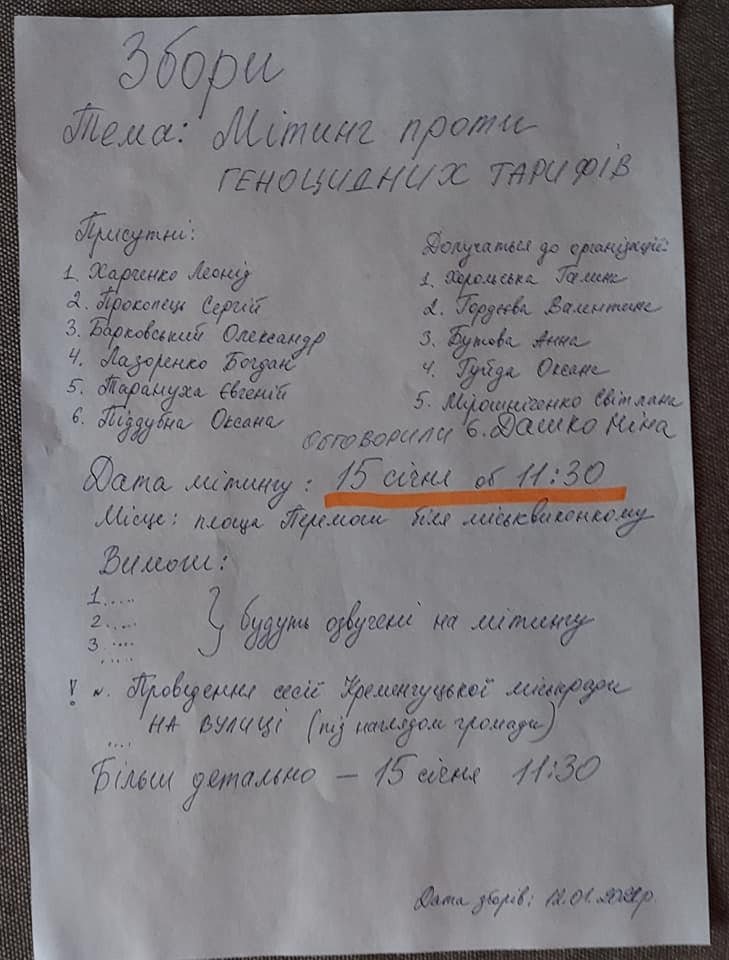 Збори
Тема: Мітинг проти
ГЕНОЦИДНИХ ТАРИФІВ
Присутні:
1. Харченко Леонід
2. Прокопець Сергій
3. Барковський Олександр
4. Лазоренко Богдан
5. Тарануха Євгеній
6. Піддубна Оксана
Долучаться до організації:
1. Хорольська Галина
2. Гордєєва Валентина
3. Бутова Анна
4. Гуйда Оксана
5. Мірошніченко Світлана
6. Дашко Ніна
ОБГОВОРИЛИ
Дата мітингу: 15 січня об 11:30
Місце: площа Перемоги біля міськвиконкому
Вимоги:
1.....
2.....
3. ....
.....
} будуть озвучені на мітингу
! n. Проведення сесії Кременчуцької міськради
НА ВУЛИЦІ (під наглядом громади)
....
Більш детально — 15 січня 11:30
Дата зборів: 12.01.2021р.